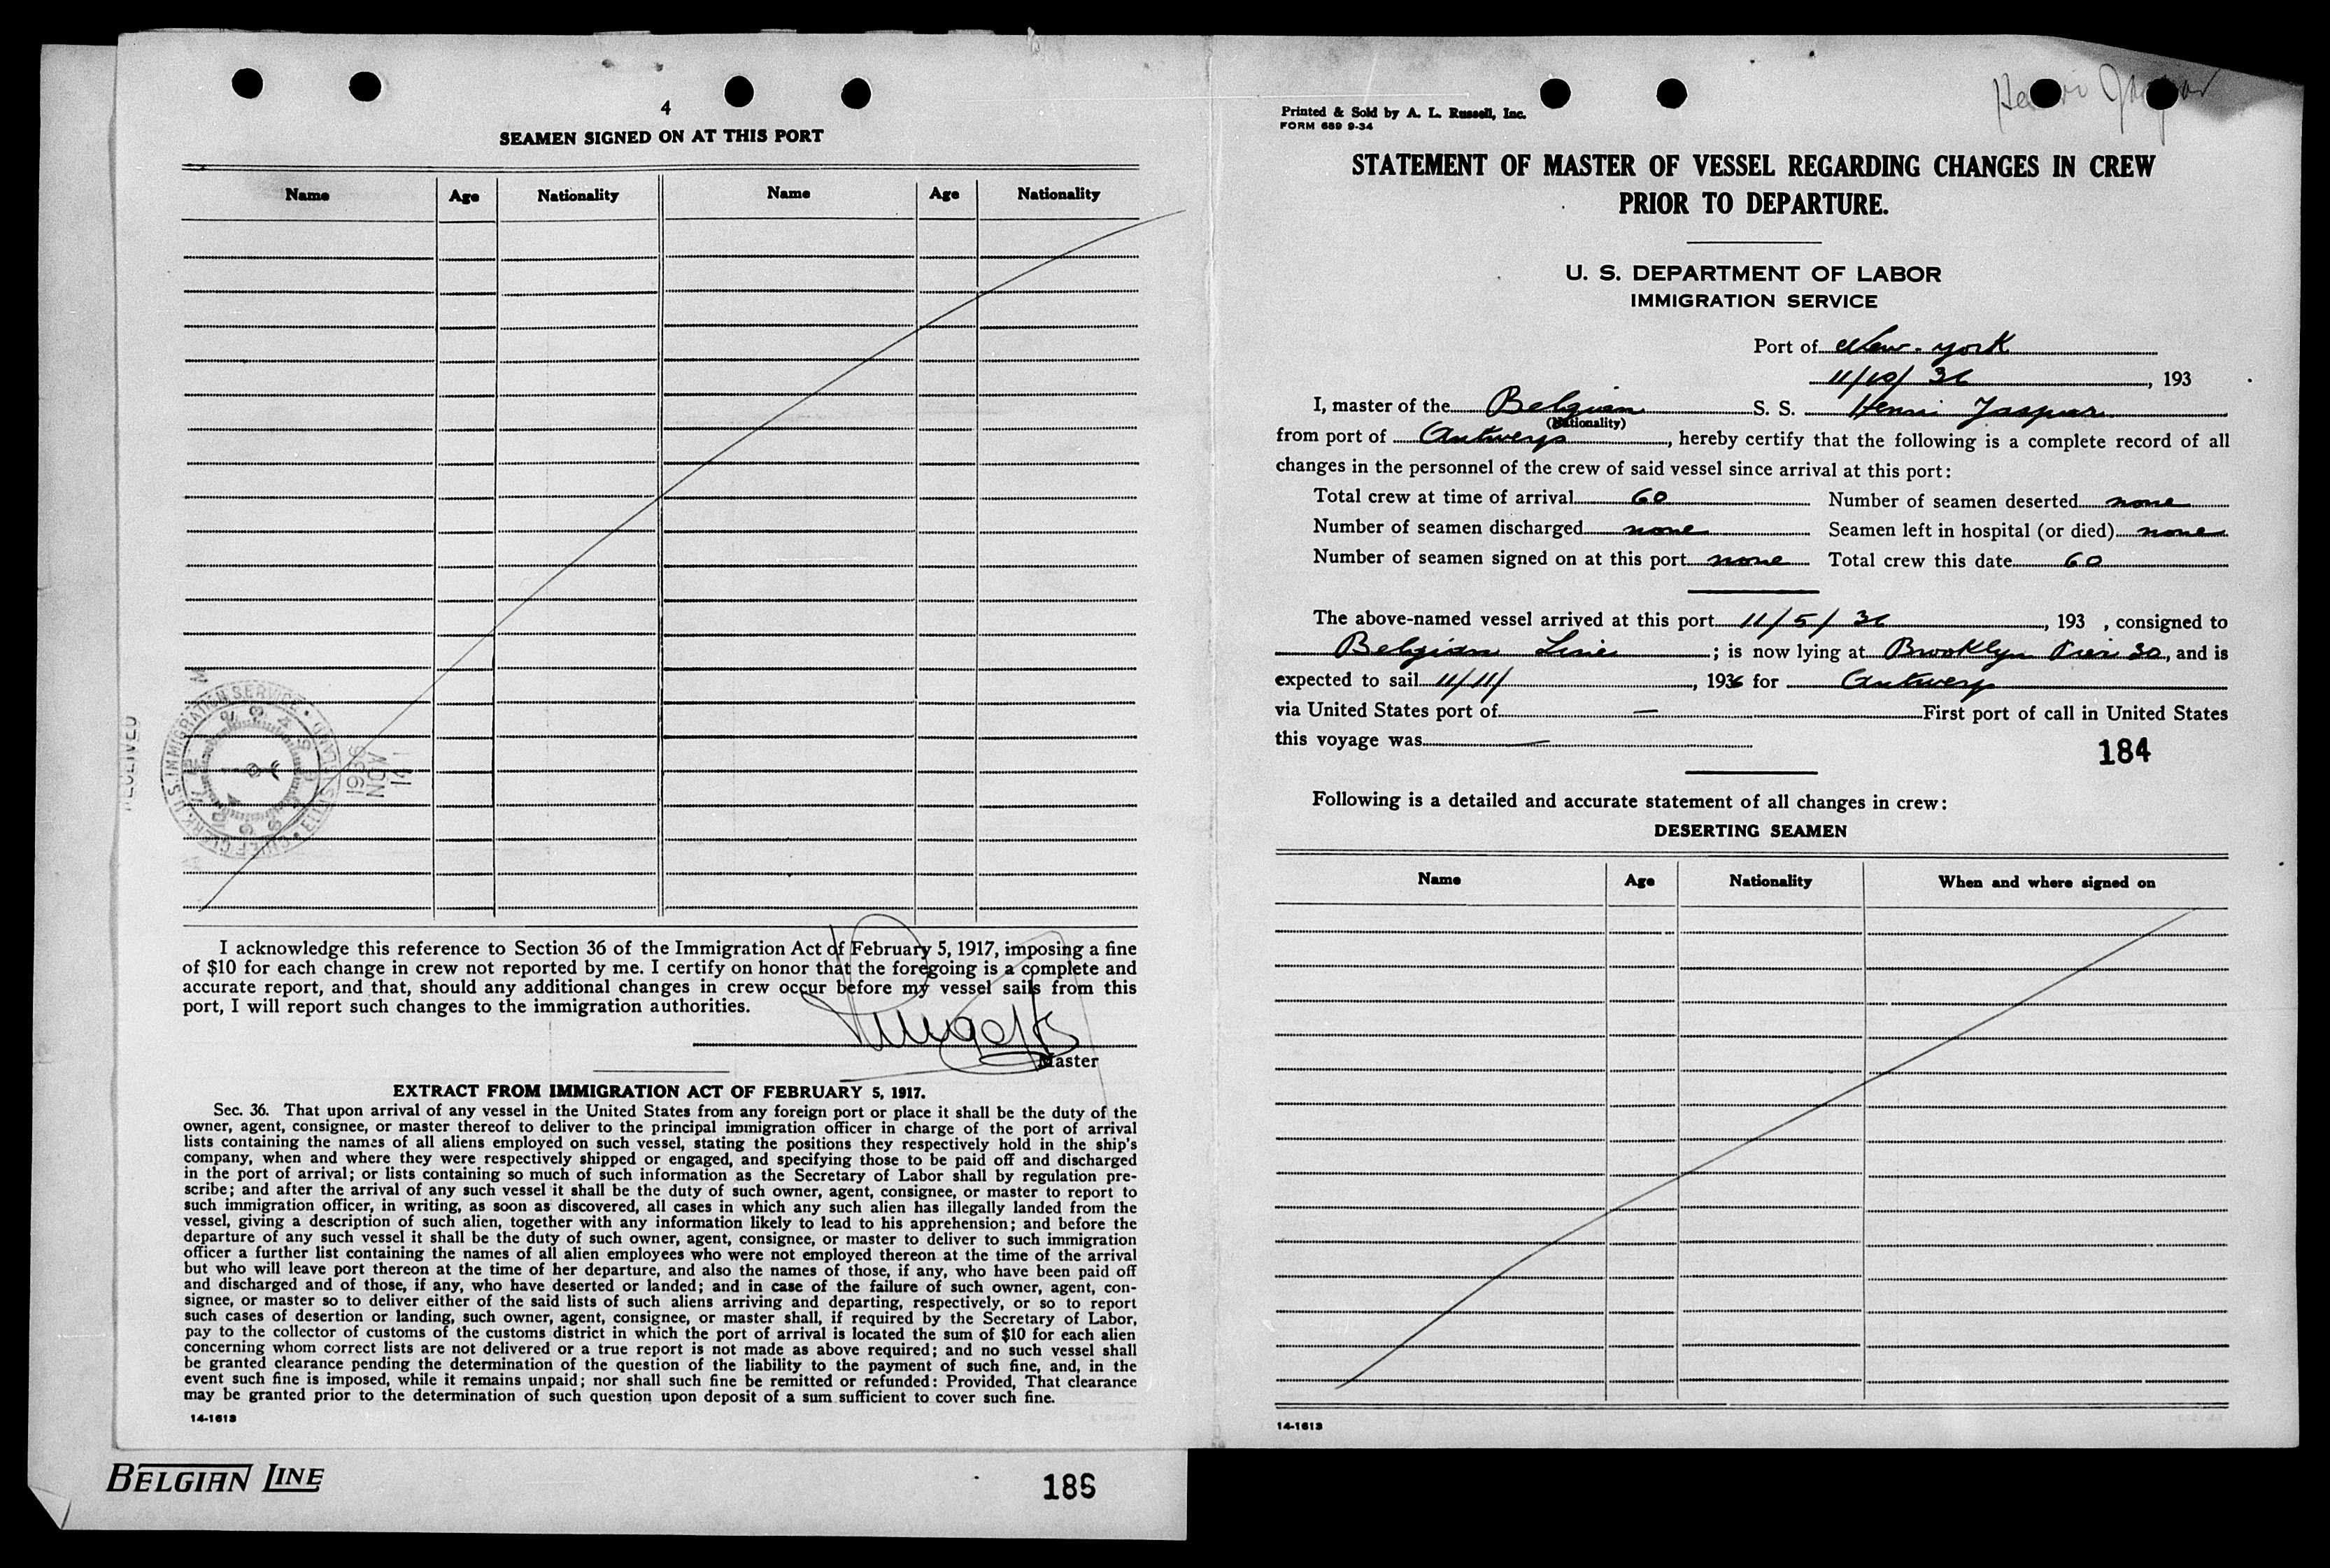 4
SEAMEN SIGNED ON AT THIS PORT
Name Age Nationality Name Age Nationality
RECEIVED
CHIEF CLERK, U.S. IMMIGRATION SERVICE • ELLIS ISLAND •
1936 NOV 14
I acknowledge this reference to Section 36 of the Immigration Act of February 5, 1917, imposing a fine
of $10 for each change in crew not reported by me. I certify on honor that the foregoing is a complete and
accurate report, and that, should any additional changes in crew occur before my vessel sails from this
port, I will report such changes to the immigration authorities.
Master
EXTRACT FROM IMMIGRATION ACT OF FEBRUARY 5, 1917.
Sec. 36. That upon arrival of any vessel in the United States from any foreign port or place it shall be the duty of the
owner, agent, consignee, or master thereof to deliver to the principal immigration officer in charge of the port of arrival
lists containing the names of all aliens employed on such vessel, stating the positions they respectively hold in the ship's
company, when and where they were respectively shipped or engaged, and specifying those to be paid off and discharged
in the port of arrival; or lists containing so much of such information as the Secretary of Labor shall by regulation pre-
scribe; and after the arrival of any such vessel it shall be the duty of such owner, agent, consignee, or master to report to
such immigration officer, in writing, as soon as discovered, all cases in which any such alien has illegally landed from the
vessel, giving a description of such alien, together with any information likely to lead to his apprehension; and before the
departure of any such vessel it shall be the duty of such owner, agent, consignee, or master to deliver to such immigration
officer a further list containing the names of all alien employees who were not employed thereon at the time of the arrival
but who will leave port thereon at the time of her departure, and also the names of those, if any, who have been paid off
and discharged and of those, if any, who have deserted or landed; and in case of the failure of such owner, agent, con-
signee, or master so to deliver either of the said lists of such aliens arriving and departing, respectively, or so to report
such cases of desertion or landing, such owner, agent, consignee, or master shall, if required by the Secretary of Labor,
pay to the collector of customs of the customs district in which the port of arrival is located the sum of $10 for each alien
concerning whom correct lists are not delivered or a true report is not made as above required; and no such vessel shall
be granted clearance pending the determination of the question of the liability to the payment of such fine, and, in the
event such fine is imposed, while it remains unpaid; nor shall such fine be remitted or refunded: Provided, That clearance
may be granted prior to the determination of such question upon deposit of a sum sufficient to cover such fine.
14-1613
BELGIAN LINE
186
Henri Jaspar
Printed & Sold by A. L. Russell, Inc.
FORM 689 9-34
STATEMENT OF MASTER OF VESSEL REGARDING CHANGES IN CREW
PRIOR TO DEPARTURE.
U. S. DEPARTMENT OF LABOR
IMMIGRATION SERVICE
Port of New-york
11/10/36, 193
I, master of the Belgian S. S. Henri Jaspar
(Nationality)
from port of Antwerp, hereby certify that the following is a complete record of all
changes in the personnel of the crew of said vessel since arrival at this port:
Total crew at time of arrival 60 Number of seamen deserted none
Number of seamen discharged none Seamen left in hospital (or died) none
Number of seamen signed on at this port none Total crew this date 60
The above-named vessel arrived at this port 11/5/36, 193 , consigned to
Belgian Line; is now lying at Brooklyn Pier 30, and is
expected to sail 11/11/, 1936 for Antwerp
via United States port of — First port of call in United States
this voyage was —
184
Following is a detailed and accurate statement of all changes in crew:
DESERTING SEAMEN
Name Age Nationality When and where signed on
14-1613